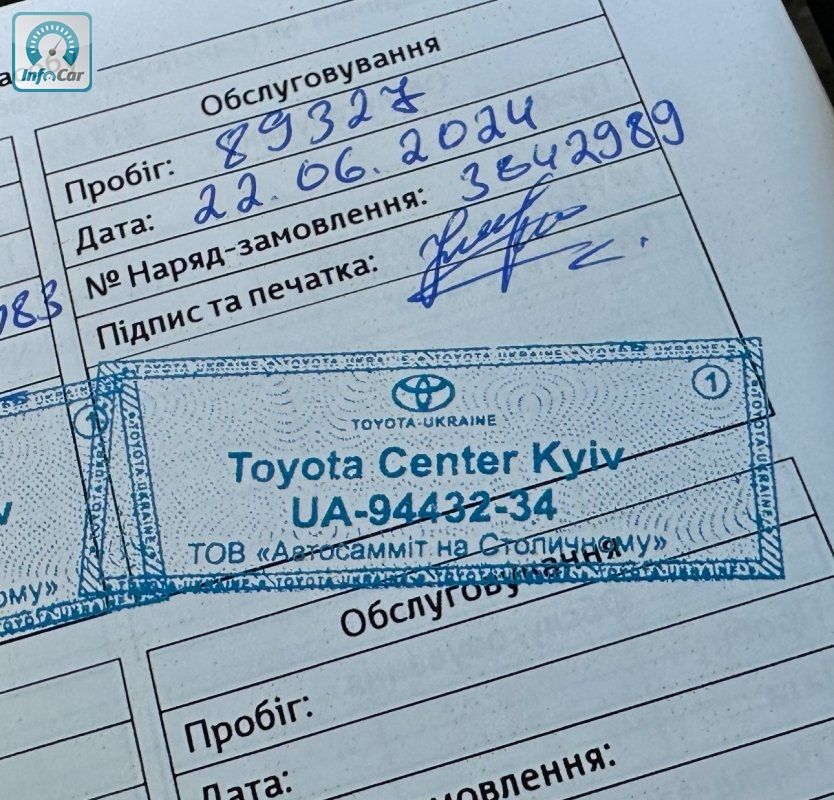 InfoCar
Обслуговування
Пробіг: 89327
Дата: 22.06.2024
№ Наряд-замовлення: 3842989
Підпис та печатка:
TOYOTA UKRAINE
1
TOYOTA-UKRAINE
Toyota Center Kyiv
UA-94432-34
ТОВ «Автосамміт на Столичному»
ому»
Обслуговування
Пробіг:
Дата:
мовлення: